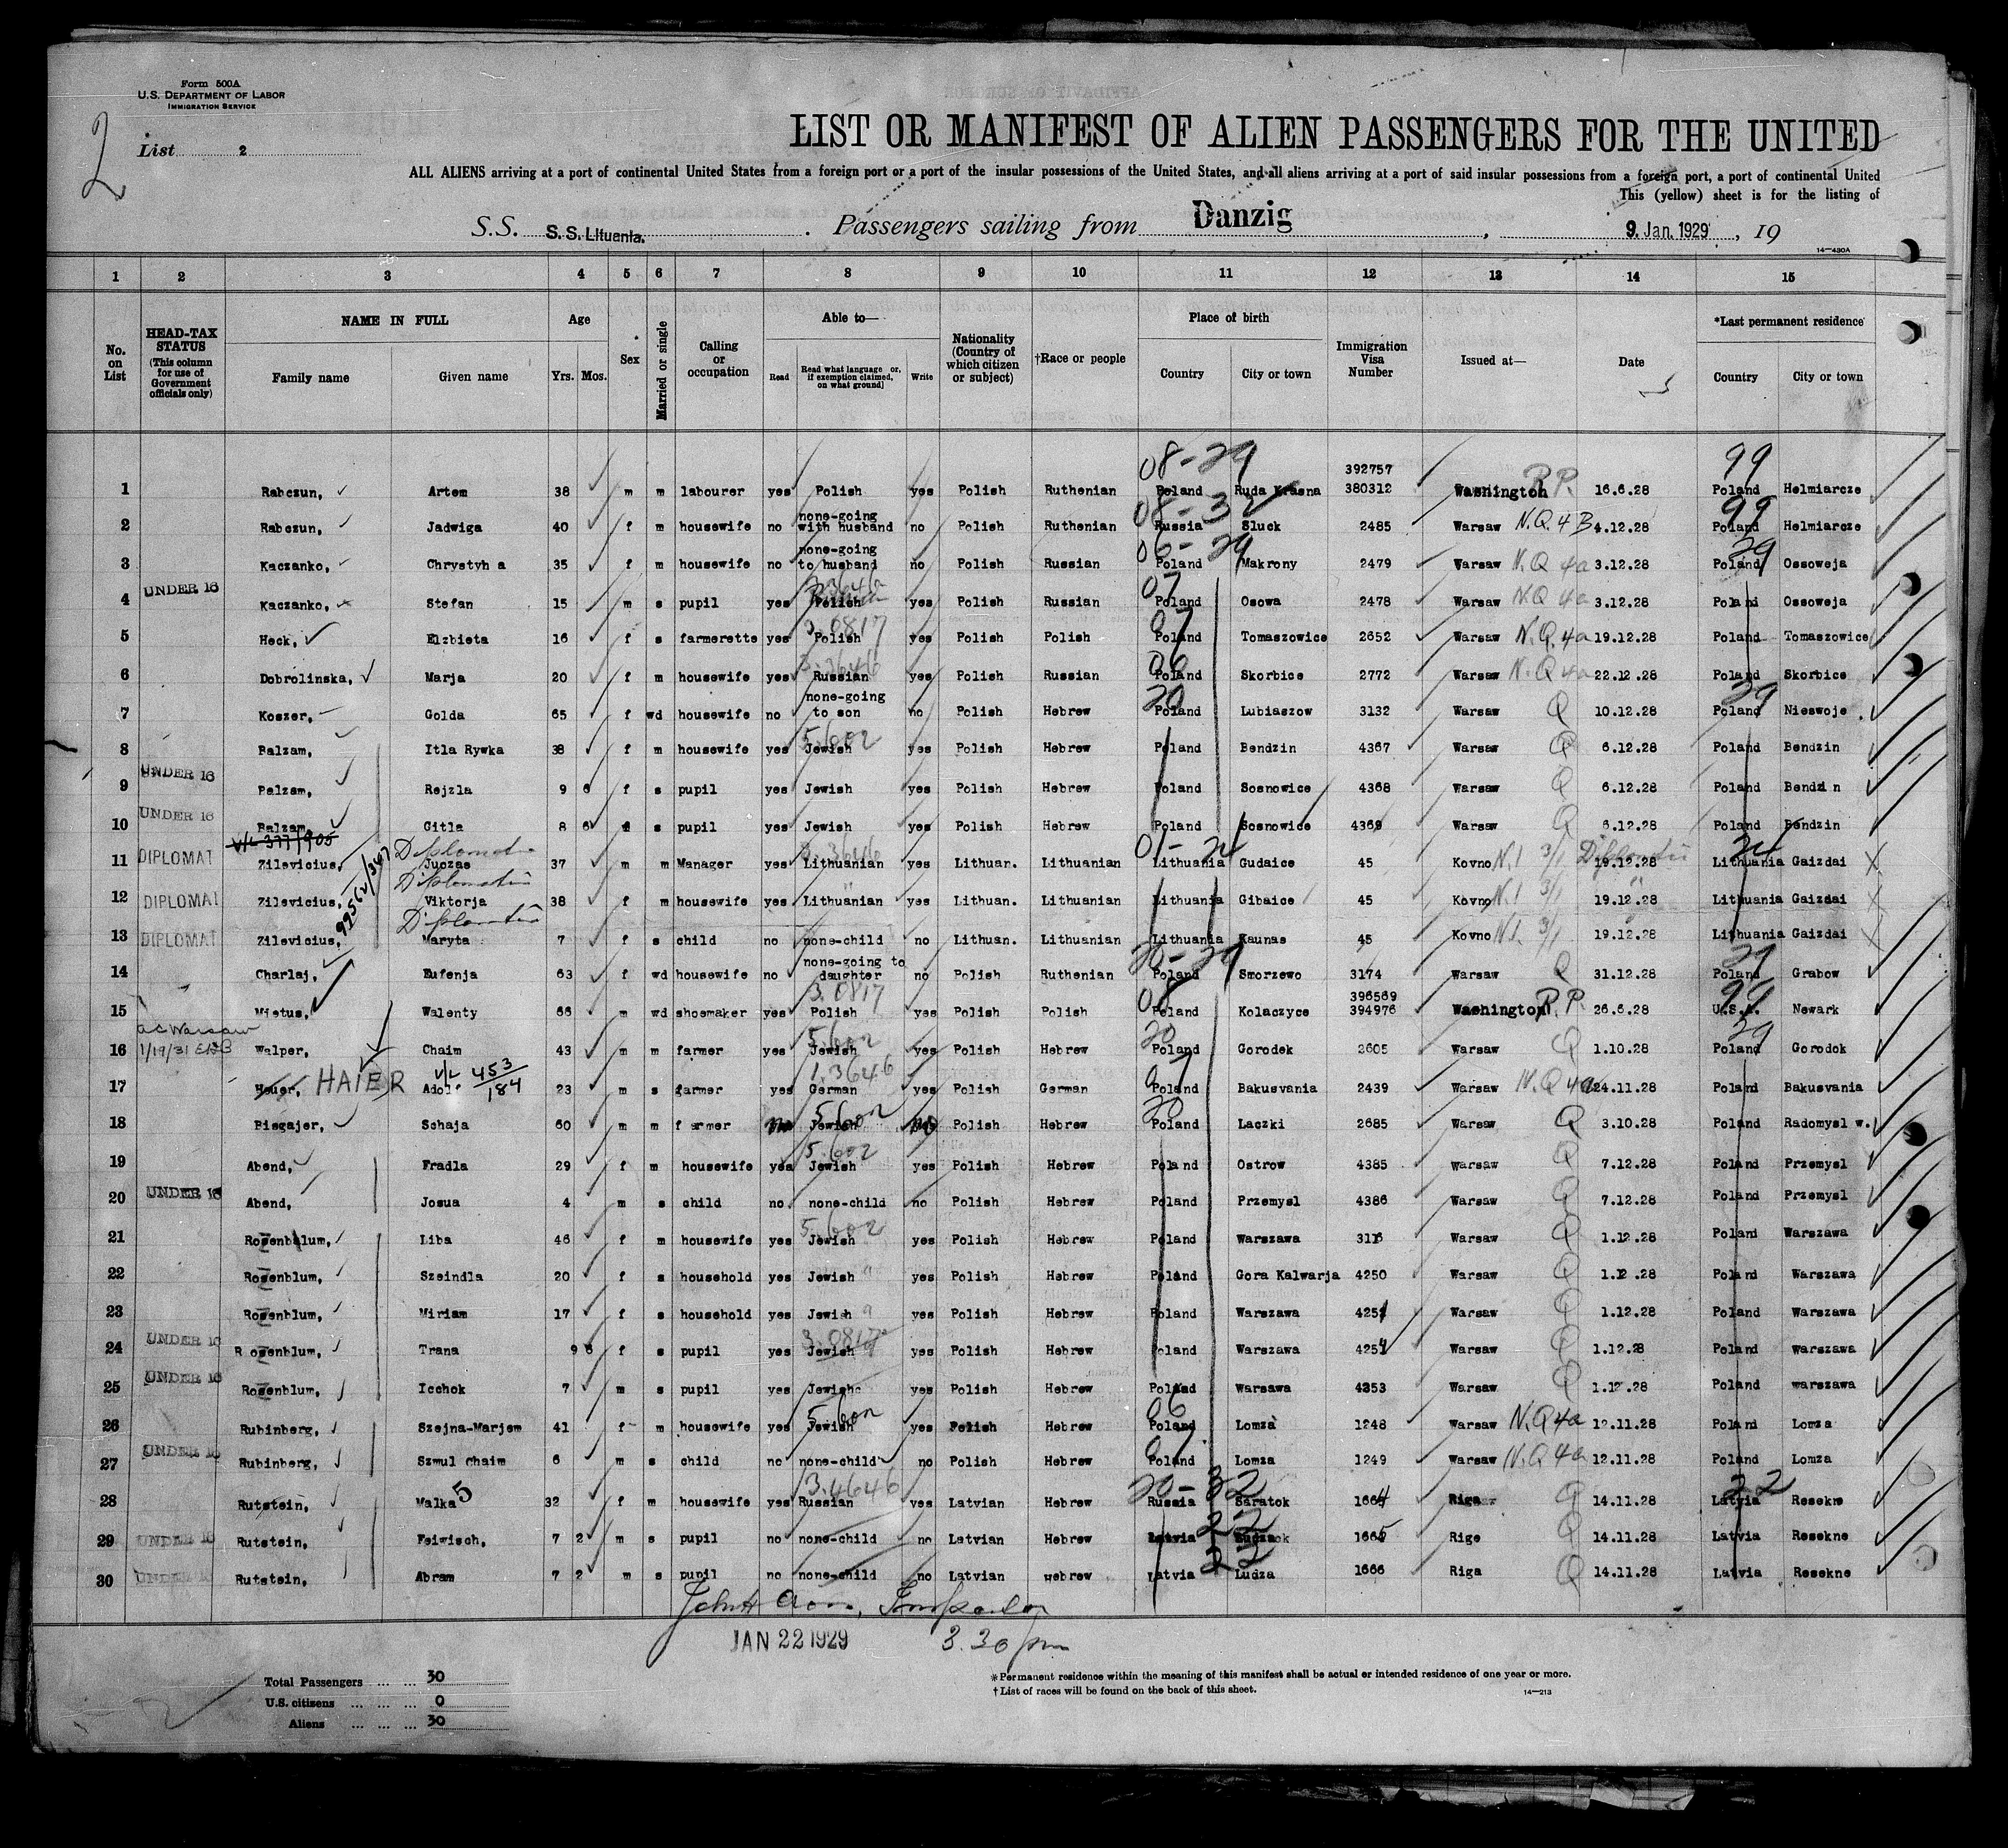 Form 500A
U.S. DEPARTMENT OF LABOR
IMMIGRATION SERVICE
2
List 2
LIST OR MANIFEST OF ALIEN PASSENGERS FOR THE UNITED
ALL ALIENS arriving at a port of continental United States from a foreign port or a port of the insular possessions of the United States, and all aliens arriving at a port of said insular possessions from a foreign port, a port of continental United
This (yellow) sheet is for the listing of
S.S. S.S. Lituania. Passengers sailing from Danzig, 9. Jan. 1929, 19
14—430A
1 2 3 4 5 6 7 8 9 10 11 12 13 14 15
No. on List
HEAD-TAX STATUS (This column for use of Government officials only)
NAME IN FULL
Family name Given name
Age
Yrs. Mos.
Sex
Married or single
Calling or occupation
Able to—
Read Read what language or, if exemption claimed, on what ground] Write
Nationality (Country of which citizen or subject)
†Race or people
Place of birth
Country City or town
Immigration Visa Number
Issued at—
Date
*Last permanent residence
Country City or town
08-29 392757 99
1 Rabczun, Artem 38 m m labourer yes Polish yes Polish Ruthenian Poland Ruda Krasna 380312 Washington R.P. 16.6.28 Poland Helmiarcze
none-going 08-32 99
2 Rabczun, Jadwiga 40 f m housewife no with husband no Polish Ruthenian Russia Sluck 2485 Warsaw N.Q.4B 4.12.28 Poland Helmiarcze
none-going 06-29 29
3 Kaczanko, Chrystyh a 35 f m housewife no to husband no Polish Russian Poland Makrony 2479 Warsaw N.Q 4a 3.12.28 Poland Ossoweja
UNDER 16 07
4 Kaczanko, Stefan 15 m s pupil yes Polish yes Polish Russian Poland Osowa 2478 Warsaw N.Q 4a 3.12.28 Poland Ossoweja
3.0817 07
5 Heck, Elzbieta 16 f s farmerette yes Polish yes Polish Polish Poland Tomaszowice 2652 Warsaw N.Q.4a 19.12.28 Poland Tomaszowice
3.3646 06
6 Dobrolinska, Marja 20 f m housewife yes Russian yes Polish Russian Poland Skorbice 2772 Warsaw N.Q 4a 22.12.28 Poland Skorbice
none-going 20 29
7 Koszer, Golda 65 f wd housewife no to son no Polish Hebrew Poland Lubiaszow 3132 Warsaw Q 10.12.28 Poland Nieswoje.
5.602
8 Balzam, Itla Rywka 38 f m housewife yes Jewish yes Polish Hebrew Poland Bendzin 4367 Warsaw Q 6.12.28 Poland Bendzin
UNDER 16
9 Balzam, Rejzla 9 6 f s pupil yes Jewish yes Polish Hebrew Poland Sosnowice 4368 Warsaw Q 6.12.28 Poland Bendzin
UNDER 16
10 Balzam, Gitla 8 6 s pupil yes Jewish yes Polish Hebrew Poland Sosnowice 4369 Warsaw Q 6.12.28 Poland Bendzin
V/L 377/905 99562/347
DIPLOMAT 01-24 24
11 Zilevicius, Juozas 37 m m Manager yes Lithuanian yes Lithuan. Lithuanian Lithuania Gudaice 45 Kovno N.I 3/1 19.12.28 Lithuania Gaizdai X
DIPLOMAT
12 Zilevicius, Viktorja 38 f m housewife yes Lithuanian yes Lithuan. Lithuanian Lithuania Gibaice 45 Kovno N.I 3/1 19.12.28 Lithuania Gaizdai X
DIPLOMAT
13 Zilevicius, Maryta 7 f s child no none-child no Lithuan. Lithuanian Lithuania Kaunas 45 Kovno N.I. 3/1 19.12.28 Lithuania Gaizdai X
none-going to 20-29 29
14 Charlaj, Eufenja 63 f wd housewife no daughter no Polish Ruthenian Poland Smorzewo 3174 Warsaw Q 31.12.28 Poland Grabow
3.0817 08 396569 99
15 Mietus, Walenty 66 m wd shoemaker yes Polish yes Polish Polish Poland Kolaczyce 394976 Washington R.P. 26.6.28 U.S.A. Newark
a.c. Warsaw 1/19/31 5.602 20 29
16 Walper, Chaim 43 m m farmer yes Jewish yes Polish Hebrew Poland Gorodek 2605 Warsaw Q 1.10.28 Poland Gorodok
V/L 453/184 1.3646 07
17 Heuer, HAIER Adolf 23 m s farmer yes German yes Polish German Poland Bakusvania 2439 Warsaw N.Q 4a 24.11.28 Poland Bakusvania
5.602 20
18 Biegajer, Schaja 60 m m farmer no Jewish no Polish Hebrew Poland Laczki 2685 Warsaw Q 3.10.28 Poland Radomysl w.
5.602
19 Abend, Fradla 29 f m housewife yes Jewish yes Polish Hebrew Poland Ostrow 4385 Warsaw Q 7.12.28 Poland Przemysl
UNDER 16
20 Abend, Josua 4 m s child no none-child no Polish Hebrew Poland Przemysl 4386 Warsaw Q 7.12.28 Poland Przemysl
5.602
21 Rosenblum, Liba 46 f m housewife yes Jewish yes Polish Hebrew Poland Warszawa Warsaw Q 1.12.28 Poland Warszawa
22 Rosenblum, Szeindla 20 f s household yes Jewish yes Polish Hebrew Poland Gora Kalwarja 4250 Warsaw Q 1.12.28 Poland Warszawa
23 Rosenblum, Miriam 17 f s household yes Jewish yes Polish Hebrew Poland Warszawa 4251 Warsaw Q 1.12.28 Poland Warszawa
UNDER 16 3.0817
24 Rosenblum, Trana 9 6 f s pupil yes Jewish yes Polish Hebrew Poland Warszawa 4254 Warsaw Q 1.12.28 Poland Warszawa
UNDER 16
25 Rosenblum, Icchok 7 m s pupil yes Jewish yes Polish Hebrew Poland Warsawa 4253 Warsaw Q 1.12.28 Poland warszawa
5.602 06
26 Rubinberg, Szejna-Marjem 41 f m housewife yes Jewish yes Polish Hebrew Poland Lomza 1248 Warsaw N.Q 4a 12.11.28 Poland Lomza
UNDER 16 07
27 Rubinberg, Szmul Chaim 6 m s child no none-child no Polish Hebrew Poland Lomza 1249 Warsaw N.Q 4a 12.11.28 Poland Lomza
5 3.4646 20-32 22
28 Rutstein, Malka 32 f m housewife yes Russian yes Latvian Hebrew Russia Saratok 1664 Riga Q 14.11.28 Latvia Resekne
UNDER 16 22
29 Rutstein, Feiwisch, 7 2 m s pupil no none-child no Latvian Hebrew Latvia 1665 Riga Q 14.11.28 Latvia Resekne
UNDER 16 22
30 Rutstein, Abram 7 2 m s pupil no none-child no Latvian Hebrew Latvia Ludza 1666 Riga Q 14.11.28 Latvia Resekne
JAN 22 1929 3.30 pm
Total Passengers ... ... 30
U.S. citizens ... ... ... 0
Aliens ... ... ... 30
*Permanent residence within the meaning of this manifest shall be actual or intended residence of one year or more.
†List of races will be found on the back of this sheet.
14—213